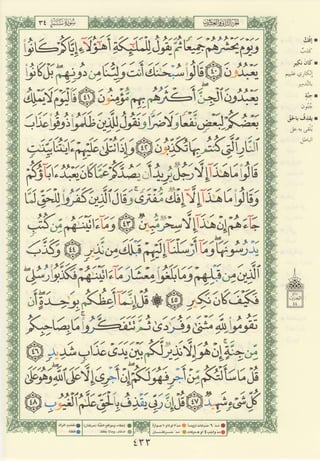 الجزء الثاني والعشرون سورة سبإ ٣٤
وَيَوْمَ يَحْشُرُهُمْ جَمِيعًا ثُمَّ يَقُولُ لِلْمَلَٰٓئِكَةِ أَهَٰٓؤُلَآءِ إِيَّاكُمْ كَانُوا۟
يَعْبُدُونَ ٤٠ قَالُوا۟ سُبْحَٰنَكَ أَنتَ وَلِيُّنَا مِن دُونِهِم بَلْ كَانُوا۟
يَعْبُدُونَ ٱلْجِنَّ أَكْثَرُهُم بِهِم مُّؤْمِنُونَ ٤١ فَٱلْيَوْمَ لَا يَمْلِكُ
بَعْضُكُمْ لِبَعْضٍ نَّفْعًا وَلَا ضَرًّا وَنَقُولُ لِلَّذِينَ ظَلَمُوا۟ ذُوقُوا۟ عَذَابَ
ٱلنَّارِ ٱلَّتِى كُنتُم بِهَا تُكَذِّبُونَ ٤٢ وَإِذَا تُتْلَىٰ عَلَيْهِمْ ءَايَٰتُنَا بَيِّنَٰتٍ
قَالُوا۟ مَا هَٰذَآ إِلَّا رَجُلٌ يُرِيدُ أَن يَصُدَّكُمْ عَمَّا كَانَ يَعْبُدُ ءَابَآؤُكُمْ
وَقَالُوا۟ مَا هَٰذَآ إِلَّآ إِفْكٌ مُّفْتَرًى وَقَالَ ٱلَّذِينَ كَفَرُوا۟ لِلْحَقِّ لَمَّا
جَآءَهُمْ إِنْ هَٰذَآ إِلَّا سِحْرٌ مُّبِينٌ ٤٣ وَمَآ ءَاتَيْنَٰهُم مِّن كُتُبٍ
يَدْرُسُونَهَا وَمَآ أَرْسَلْنَآ إِلَيْهِمْ قَبْلَكَ مِن نَّذِيرٍ ٤٤ وَكَذَّبَ
ٱلَّذِينَ مِن قَبْلِهِمْ وَمَا بَلَغُوا۟ مِعْشَارَ مَآ ءَاتَيْنَٰهُمْ فَكَذَّبُوا۟ رُسُلِى
فَكَيْفَ كَانَ نَكِيرِ ٤٥ ۞ قُلْ إِنَّمَآ أَعِظُكُم بِوَٰحِدَةٍ أَن
تَقُومُوا۟ لِلَّهِ مَثْنَىٰ وَفُرَٰدَىٰ ثُمَّ تَتَفَكَّرُوا۟ مَا بِصَاحِبِكُم
مِّن جِنَّةٍ إِنْ هُوَ إِلَّا نَذِيرٌ لَّكُم بَيْنَ يَدَىْ عَذَابٍ شَدِيدٍ ٤٦
قُلْ مَا سَأَلْتُكُم مِّنْ أَجْرٍ فَهُوَ لَكُمْ إِنْ أَجْرِىَ إِلَّا عَلَى ٱللَّهِ وَهُوَ عَلَىٰ
كُلِّ شَىْءٍ شَهِيدٌ ٤٧ قُلْ إِنَّ رَبِّى يَقْذِفُ بِٱلْحَقِّ عَلَّٰمُ ٱلْغُيُوبِ ٤٨
٤٣٣